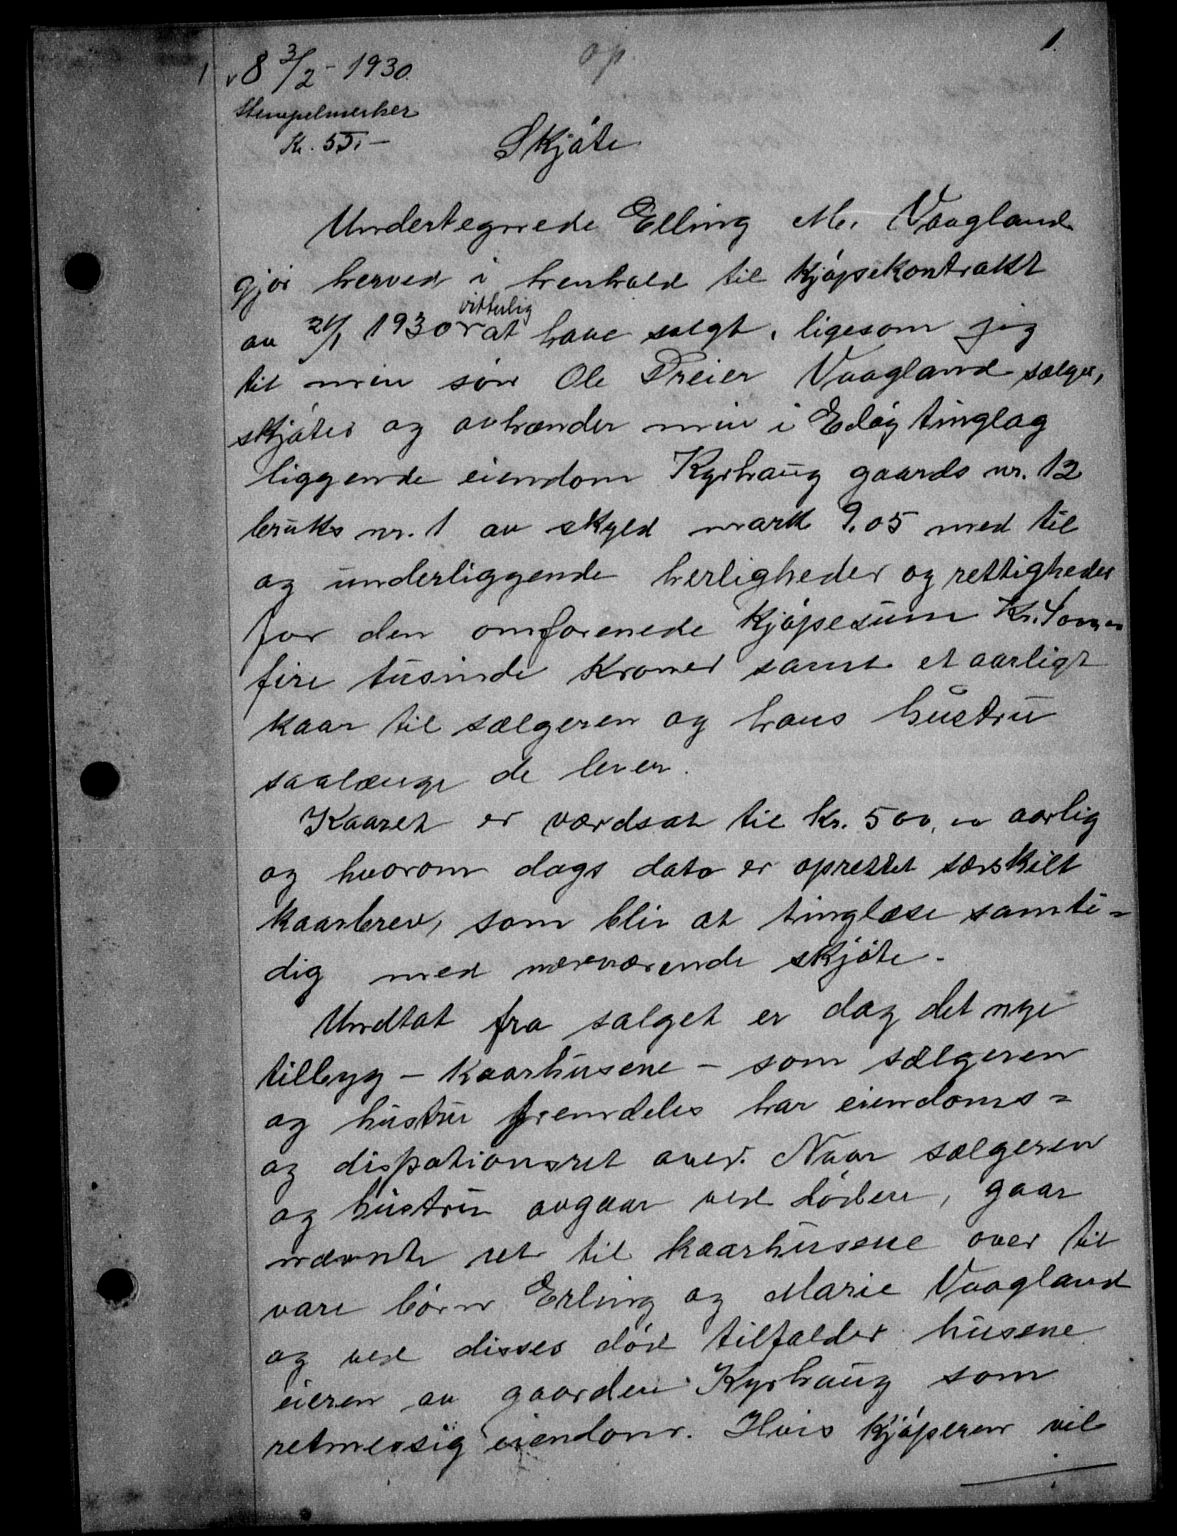 op. 1.
v 8 3/2 - 1930.
Stempelmerker
Kr. 55,-
Skjøte
Undertegnede Elling M. Vaagland
gjør herved i henhold til kjøpekontrakt
av 24/1 1930 vitterlig at have solgt, ligesom jeg
til min søn Ole Preier Vaagland sælger,
skjøter og avhænder min i Edøy tinglag
liggende eiendom Kyrhaug gaards nr. 12
bruks nr. 1 av skyld mark 9.05 med til
og underliggende herligheder og rettigheder
for den omforenede kjøpesum Kr. 4000,00
fire tusinde kroner samt et aarligt
kaar til sælgeren og hans hustru
saalænge de lever.
Kaaret er værdsat til kr. 500,00 aarlig
og hvorom dags dato er oprettet særskilt
kaarbrev, som blir at tinglæse samti=
dig med nærværende skjøte.
Undtat fra salget er dog det nye
tilbyg - kaarhusene - som sælgeren
og hustru fremdeles har eiendoms=
og dispationsret over. Naar sælgeren
og hustru avgaar ved døden, gaar
nævnte ret til kaarhusene over til
vare børn Erling og Marie Vaagland
og ved disses død tilfalder husene
eieren av gaarden Kyrhaug som
retmessig eiendom. Hvis kjøperen vil